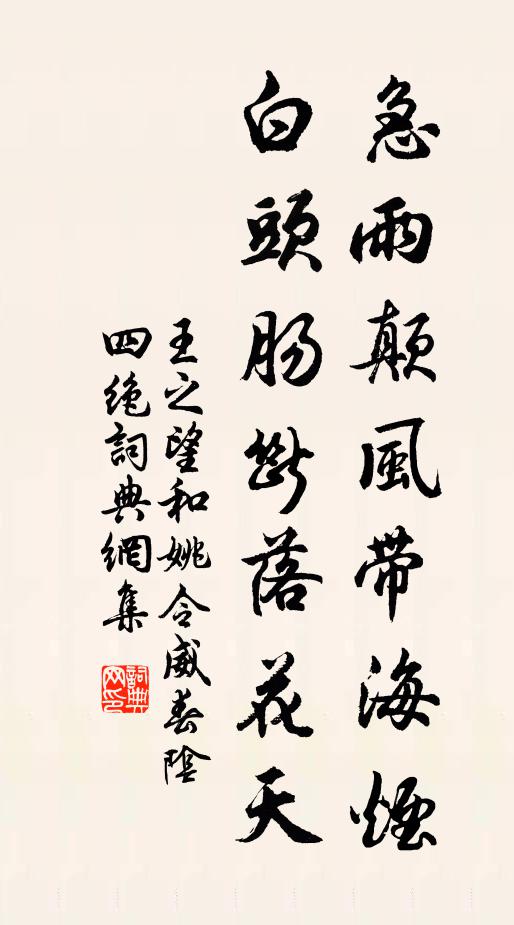 急雨顛風帶海煙
白頭腸斷落花天
王之望和姚令威春陰
四絶詞典網集
詞典
网印